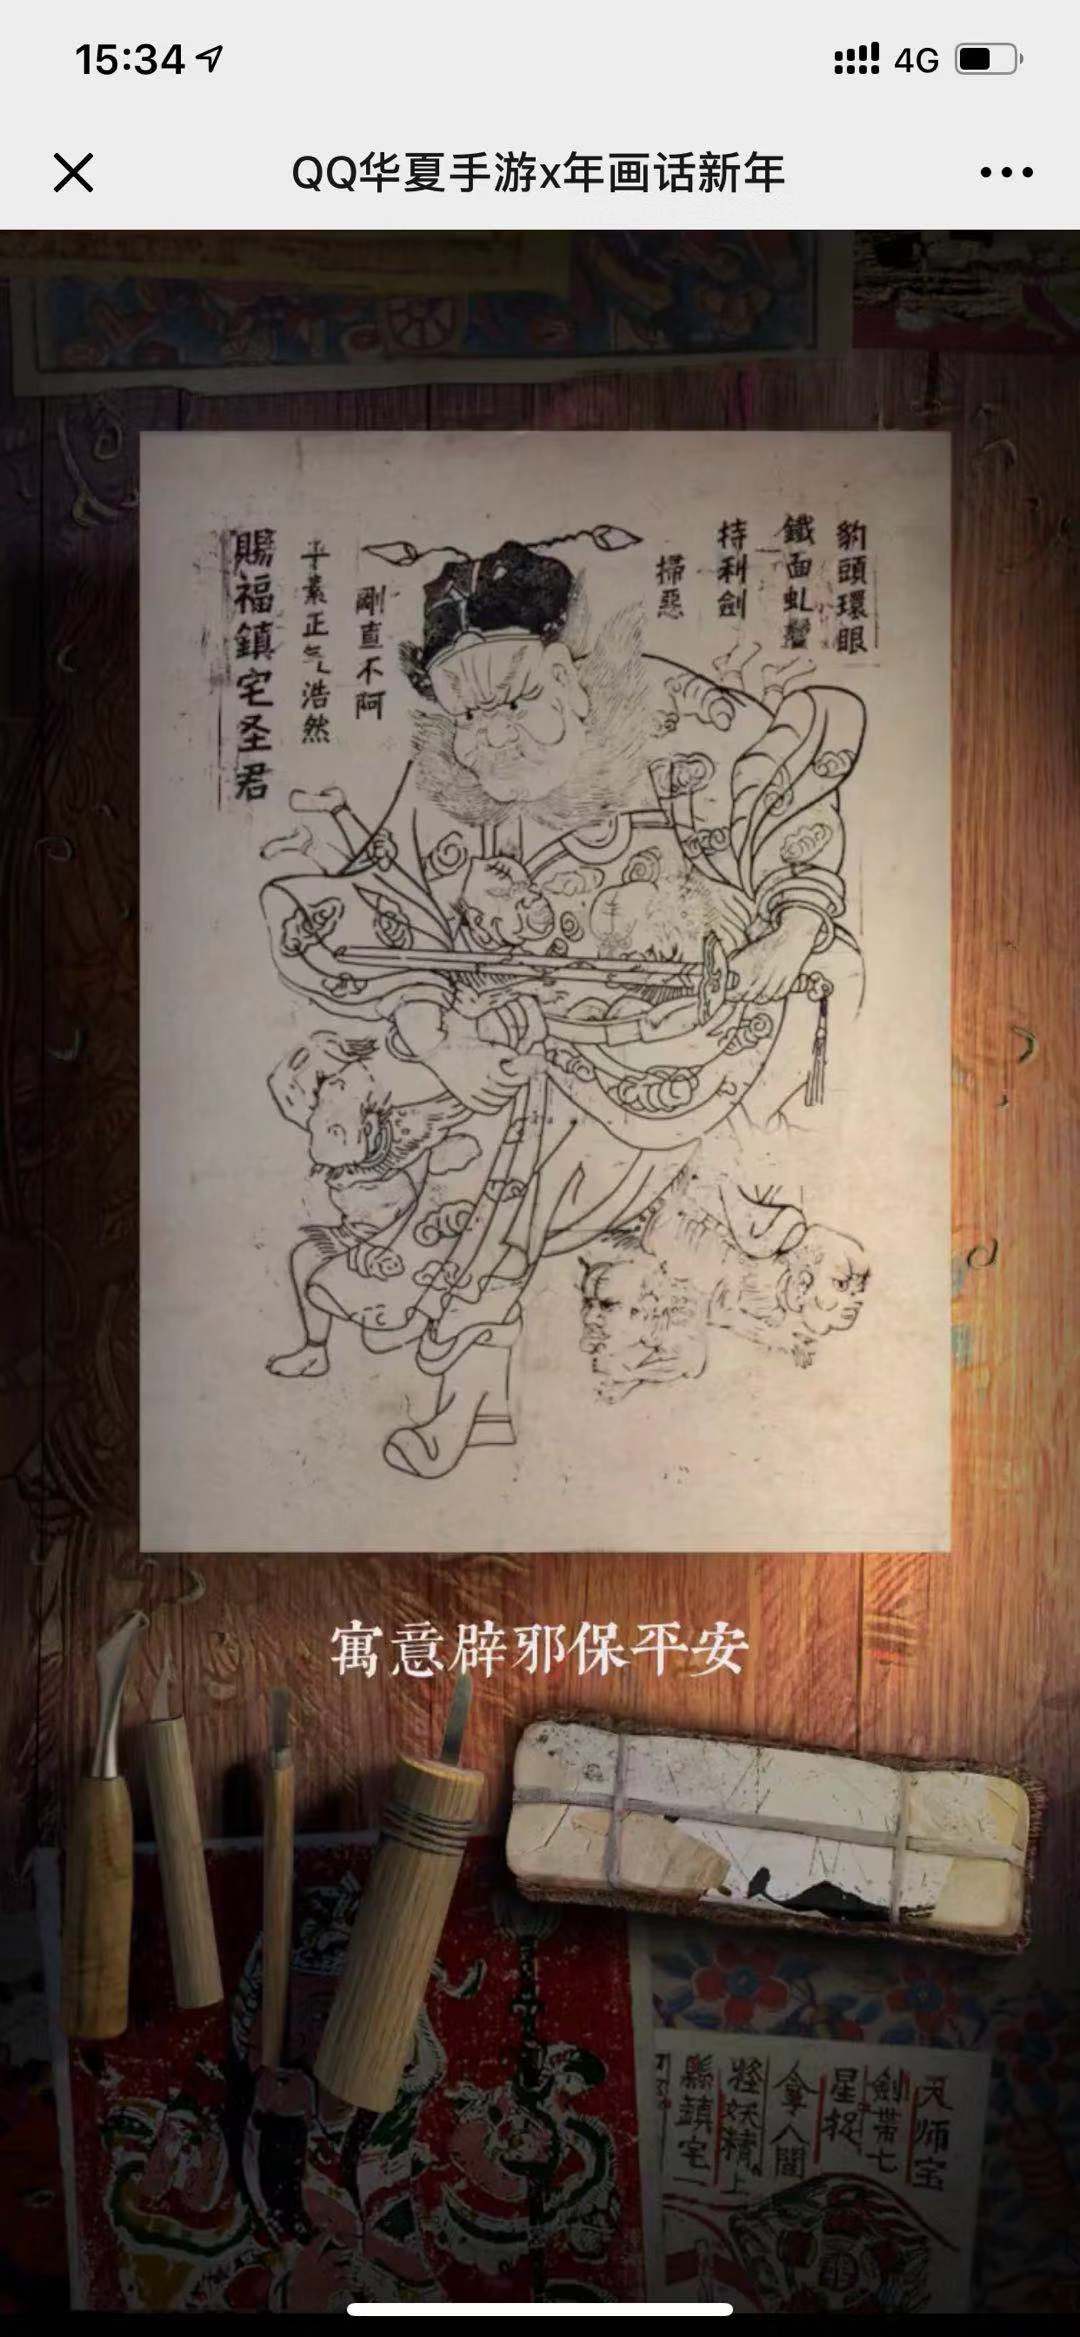 15:34
4G
QQ华夏手游x年画话新年
豹頭環眼
鐵面虬鬢
持利劍
掃惡
剛直不阿
平素正气浩然
賜福鎮宅圣君
寓意辟邪保平安
天师宝
劍帶七
星捉
拿人間
怪妖精上
縣鎮宅一